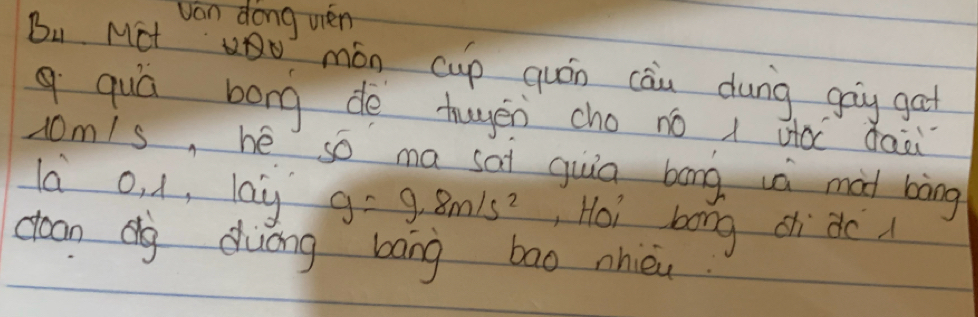 vân động viên
B4. Một VĐV môn cúp quôn cầu dùng gậy gạt
quả bóng để truyền cho nó 1 vtốc đầu
10m/s, hệ số ma sát giữa bóng và mặt băng
là 0,1, lấy g = 9,8m/s², Hỏi bóng đi đc 1
đoạn đg đường bằng bao nhiêu.